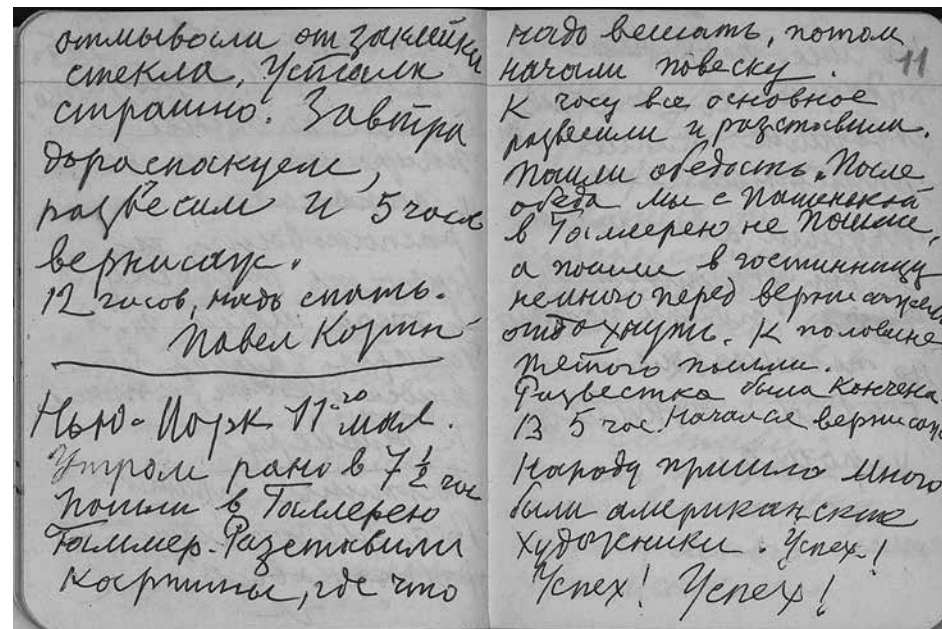 отмывали от заклейки
стекла, Устали
страшно. Завтра
дораспакуем,
развесим и 5 часов
вернисаж.
12 часов, надо спать.
Павел Корин
Нью-Йорк 11-го мая.
Утром рано в 7 ½ час
пошли в Галлерею
Гаммер. Разставили
картины, где что
надо вешать, потом
начали повеску.
11
К часу все основное
развесили и разставили.
Пошли обедать. После
обеда мы с Пашенькой
в Галлерею не пошли,
а пошли в гостинницу
немного перед вернисажем
отдохнуть. К половине
пятого пошли.
Развестка была кончена
В 5 час. Начался вернисаж
Народу пришло много
были американские
художники. Успех!
Успех! Успех!